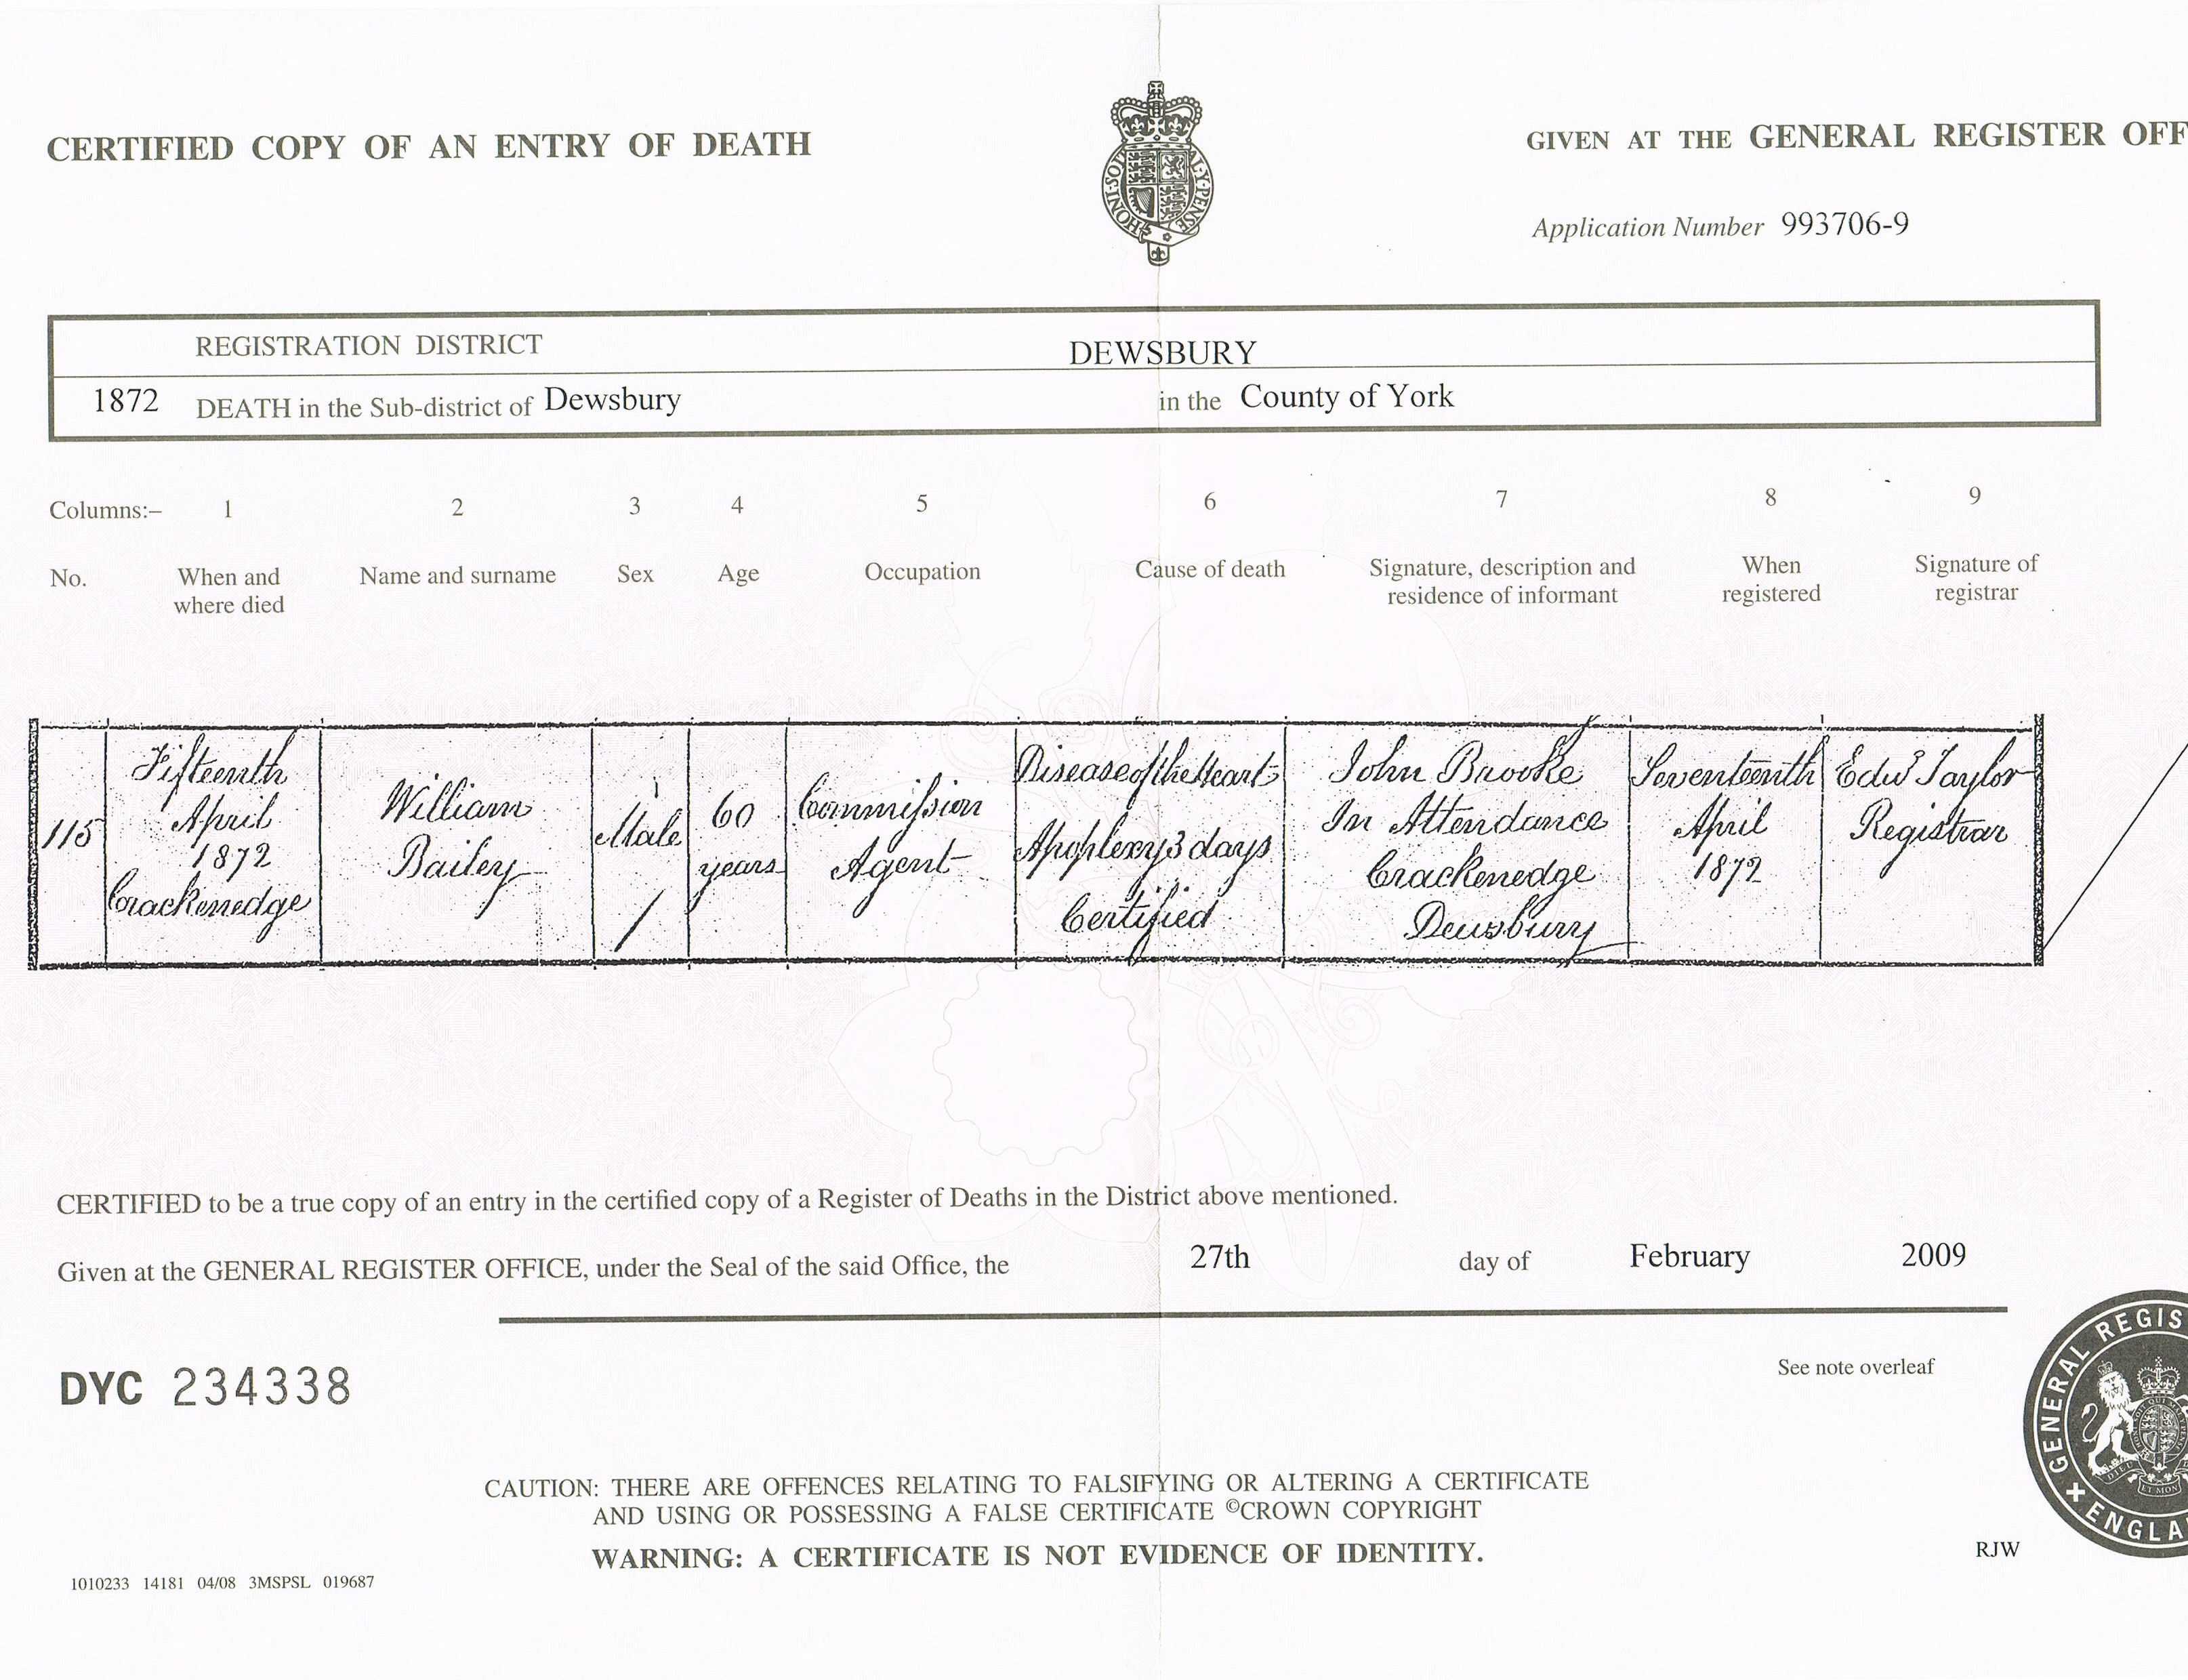 CERTIFIED COPY OF AN ENTRY OF DEATH
GIVEN AT THE GENERAL REGISTER OFF
HONI·SOI
AL·Y·PENSE
Application Number 993706-9
REGISTRATION DISTRICT DEWSBURY
1872 DEATH in the Sub-district of Dewsbury in the County of York
Columns:– 1 2 3 4 5 6 7 8 9
No. When and where died Name and surname Sex Age Occupation Cause of death Signature, description and residence of informant When registered Signature of registrar
115
Fifteenth
April
1872
Crackenedge
William
Bailey
Male
60
years
Commission
Agent
Disease of the Heart
Apoplexy 3 days
Certified
John Brooke
In Attendance
Crackenedge
Dewsbury
Seventeenth
April
1872
Edwd Taylor
Registrar
CERTIFIED to be a true copy of an entry in the certified copy of a Register of Deaths in the District above mentioned.
Given at the GENERAL REGISTER OFFICE, under the Seal of the said Office, the 27th day of February 2009
DYC 234338
See note overleaf
GENERAL REGIS
ENGLA
CAUTION: THERE ARE OFFENCES RELATING TO FALSIFYING OR ALTERING A CERTIFICATE
AND USING OR POSSESSING A FALSE CERTIFICATE ©CROWN COPYRIGHT
WARNING: A CERTIFICATE IS NOT EVIDENCE OF IDENTITY.
RJW
1010233 14181 04/08 3MSPSL 019687